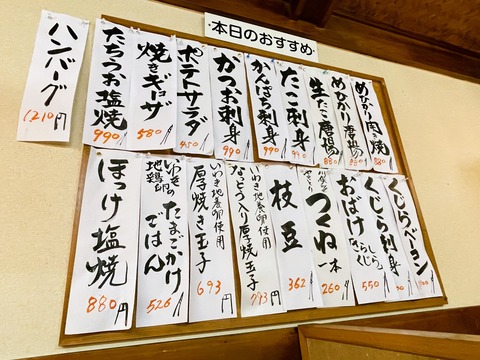 本日のおすすめ
めひかり肉巻焼
880
めひかり唐揚
880
生たこ唐揚
880
たこ刺身
990
かんぱち刺身
990
かつお刺身
990
ポテトサラダ
450
焼きギョーザ
580
たちうお塩焼
990
ハンバーグ
1210円
くじらベーコン
くじら刺身
おばけ
さらしくじら
550
つくね一本
260
枝豆
362
いわき地養卵使用
なっとう入り厚焼玉子
793円
いわき地養卵使用
厚焼き玉子
693円
いわきの
地鶏卵
たまごかけ
ごはん
526
ほっけ塩焼
880円